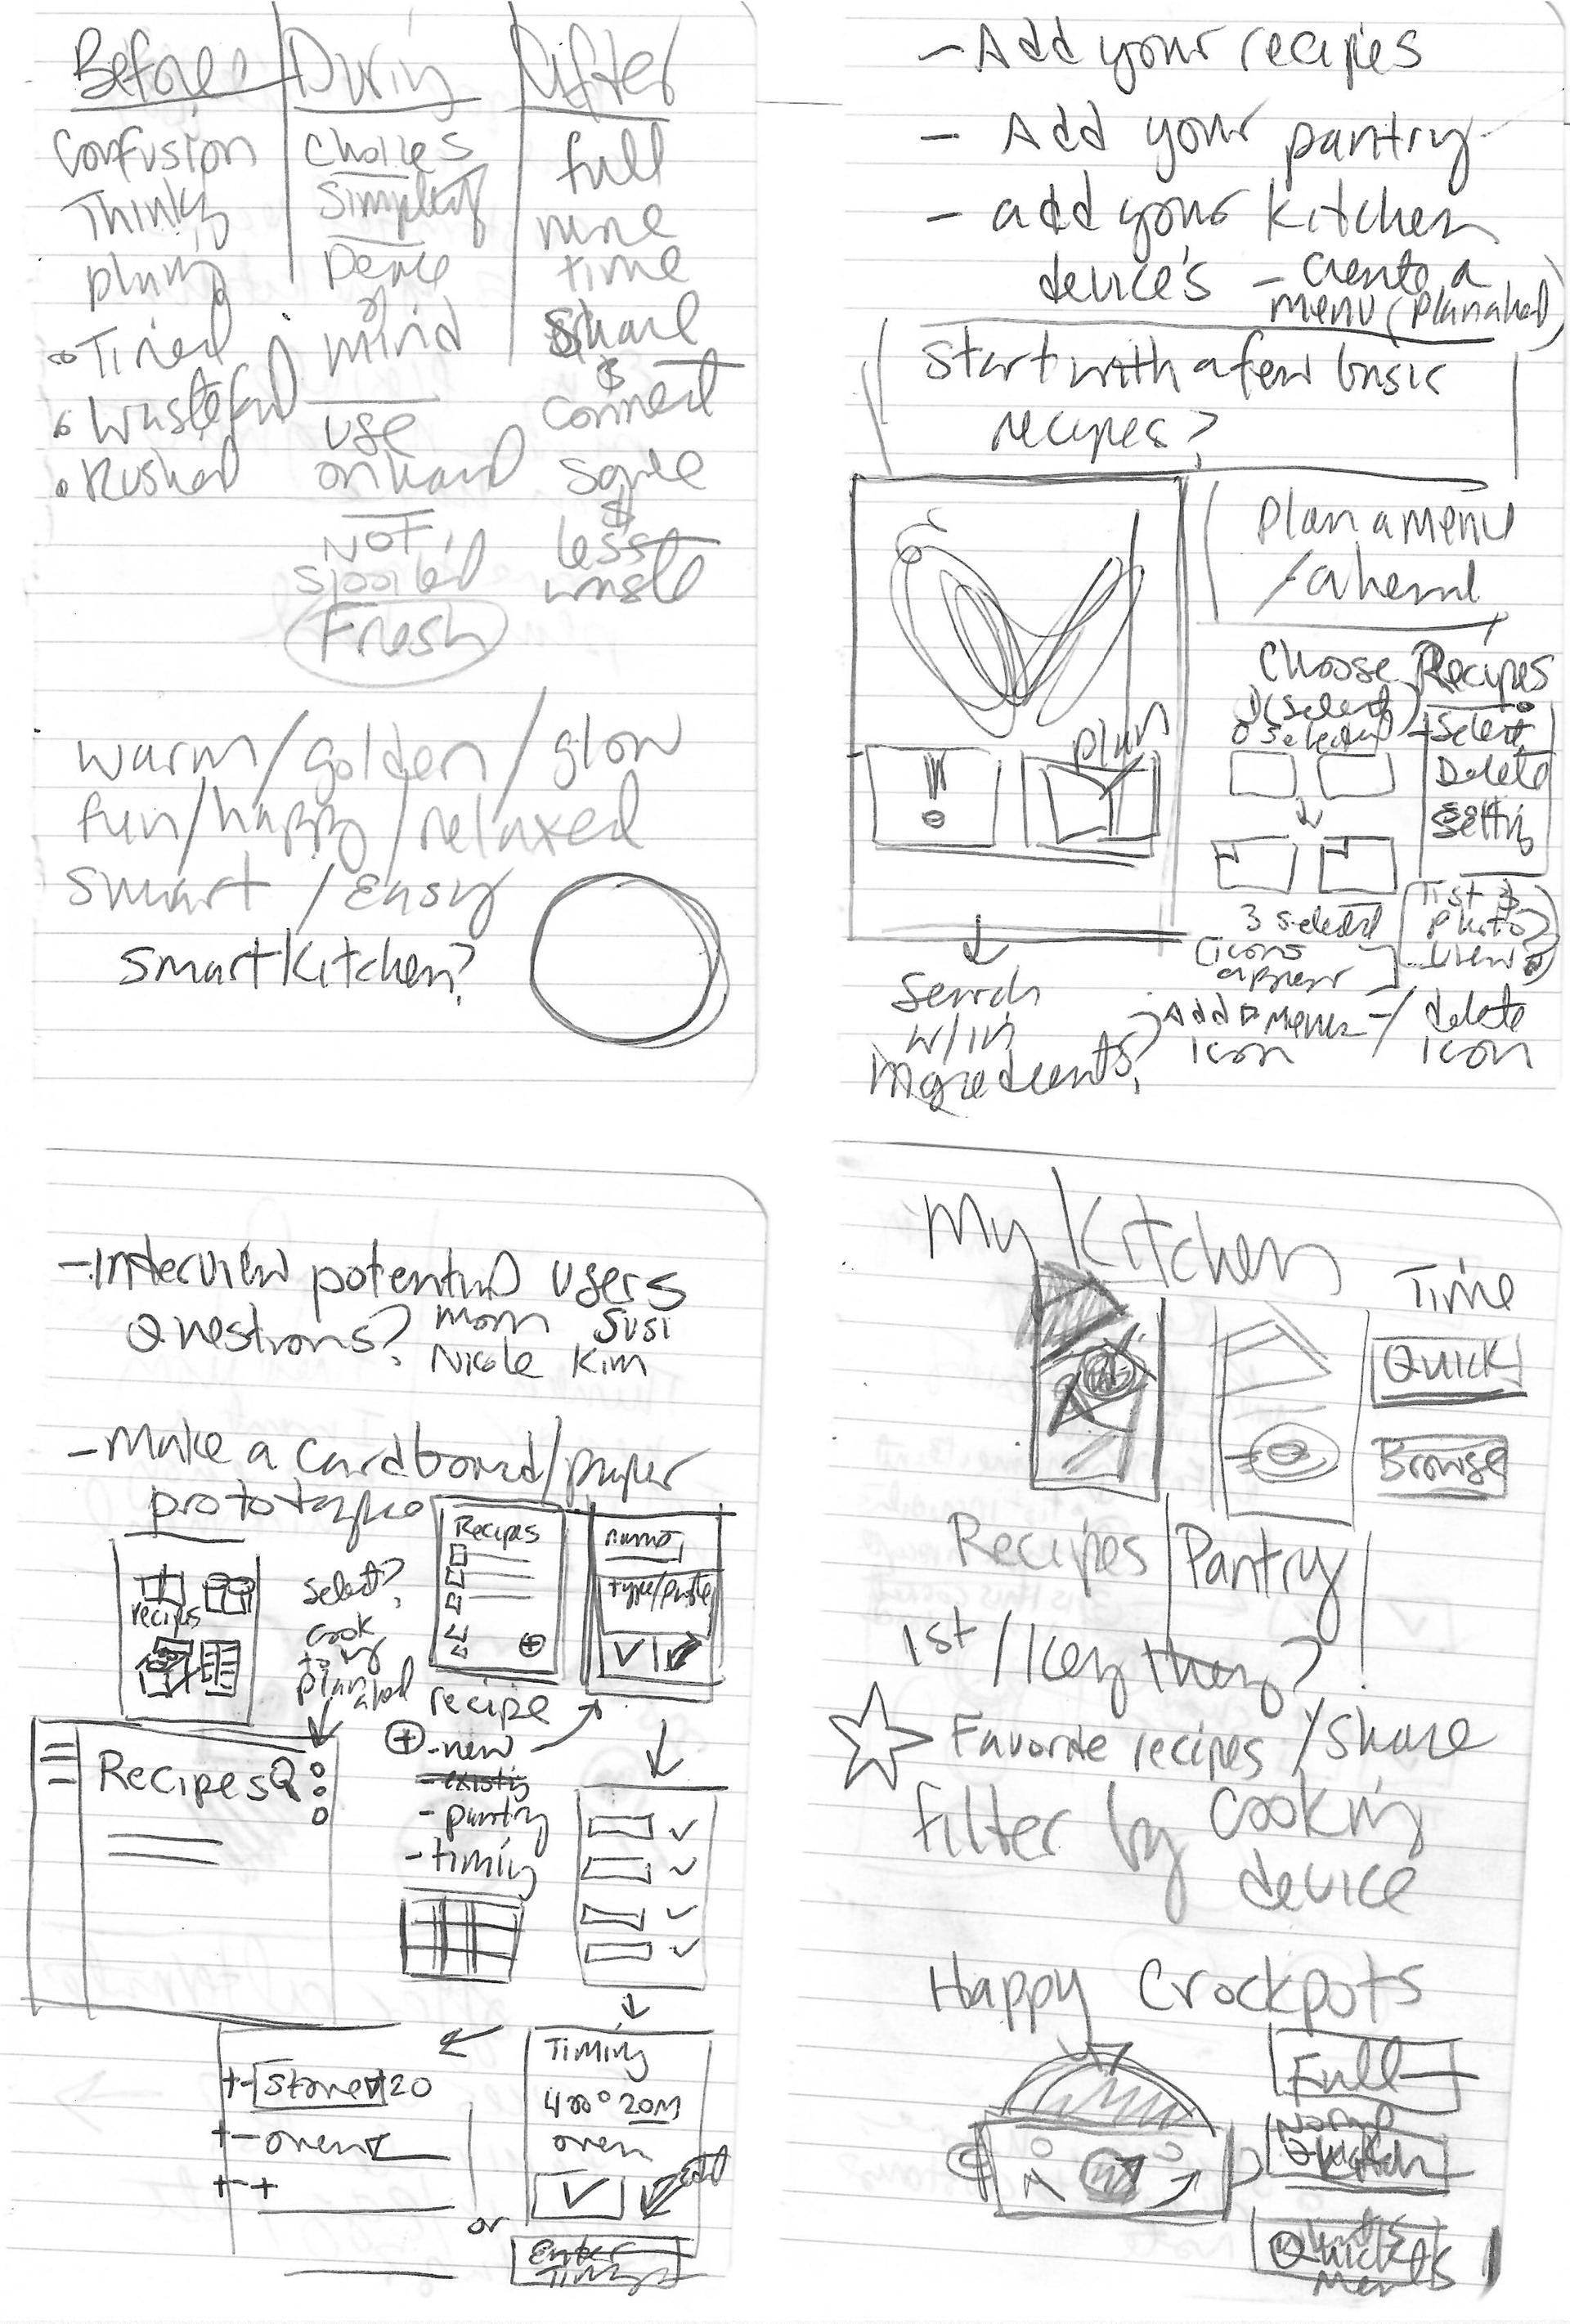 Before During After
Confusion choices full
Thinking Simplicity more
planing peace time
of
Tired mind Share
&
Wasteful use connect
Rushed on hand
$
NOT less
spoiled waste
Fresh
warm/golden/glow
fun/happy/relaxed
smart/easy
SmartKitchen?
- Add your recipes
- Add your pantry
- add your kitchen
device's - create a
menu (planahed)
Start with a few basic
recipes?
Plan a menu
/ahead
plan
Choose Recipes
Select
Delete
3 selected
icons
appear
Add menu / delete
icon icon
Search
w/in
ingredients?
- Interview potential users
Questions? Mom Susi
Nicole Kim
- Make a cardboard/paper
prototype
Recipes
name
type/paste
recipes
Select?
cook
today
plan
ahead
recipe
- new
- existing
- pantry
- timing
Recipes
Timing
400° 20M
oven
edit
stove 20
oven
or
Enter
Timing
My Kitchen
Time
Quick
Browse
Recipes | Pantry
1st/Key thing?
Favorite recipes /share
filter by cooking
device
Happy Crockpots
Full
Quick